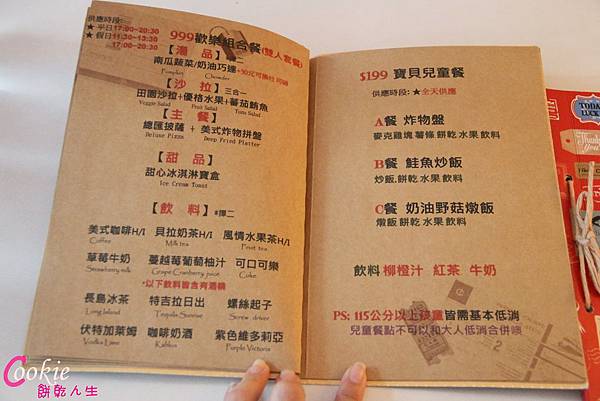 供應時段:
★ 平日17:00~20:30
★ 假日11:30~13:30
17:00~20:30
999歡樂組合餐(雙人套餐)
【湯 品】
南瓜蔬菜/奶油巧達+90元可換牡
Pumpkin Chowder
【沙 拉】三合一
田園沙拉+優格水果+蕃茄鮪魚
Veggie Salad Fruit Salad Tuna Salad
【主 餐】
總匯披薩 + 美式炸物拼盤
Deluxe Pizza Deep Fried Platter
【甜 品】
甜心冰淇淋寶盒
Ice Cream Toast
【飲 料】*擇二
美式咖啡H/I 貝拉奶茶H/I 風情水果茶H/I
Coffee Milk tea Fruit tea
草莓牛奶 蔓越莓葡萄柚汁 可口可樂
Strawberry milk Grape Cranberry juice Coke
*以下飲料皆含有酒精
長島冰茶 特吉拉日出 螺絲起子
Long Island Tequila Sunrise Screw driver
伏特加萊姆 咖啡奶酒 紫色維多莉亞
Vodka Lime Kahlua Purple Victoria
$199 寶貝兒童餐
供應時段: ★全天供應
A餐 炸物盤
麥克雞塊 薯條 餅乾 水果 飲料
B餐 鮭魚炒飯
炒飯 餅乾 水果 飲料
C餐 奶油野菇燉飯
燉飯 餅乾 水果 飲料
飲料 柳橙汁 紅茶 牛奶
PS: 115公分以上孩童皆需基本低消
兒童餐點不可以和大人低消合併噢
TODAY
LUCKY
Thank
You
Cookie
餅乾人生